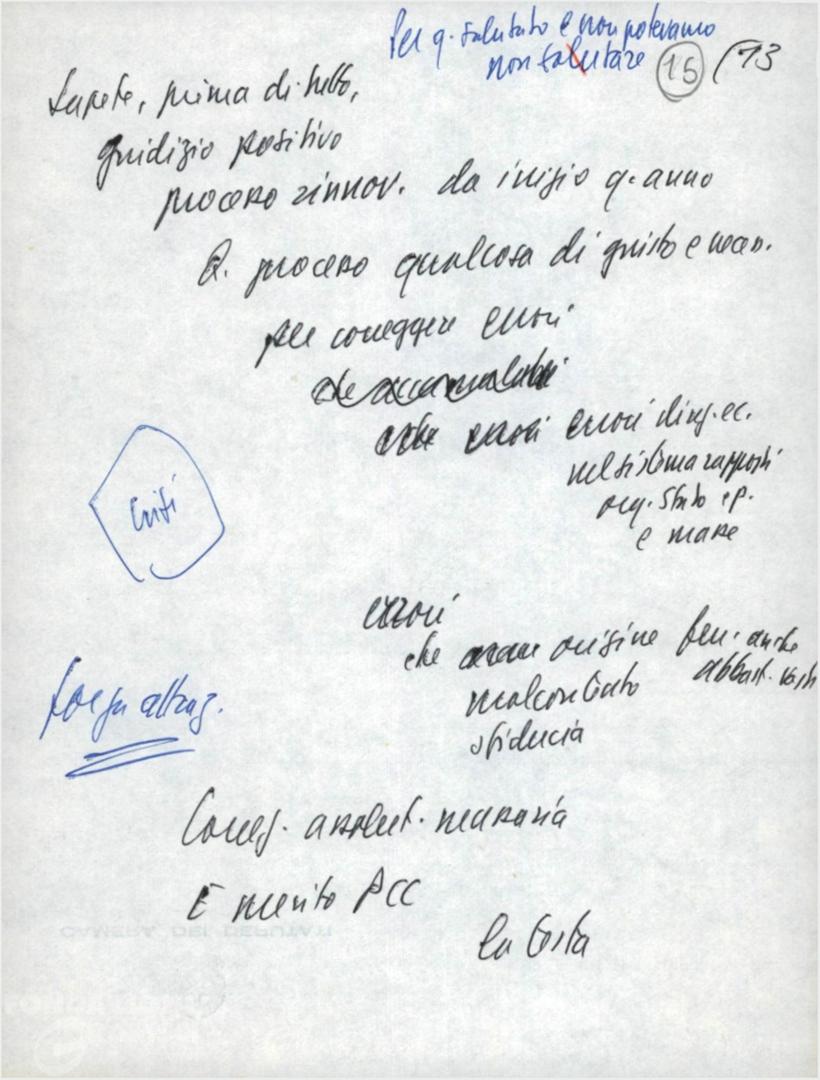 Per q. salutato e non potevamo
non salutare 15 (13
Sapete, prima di tutto,
giudizio positivo
processo rinnov. da inizio q. anno
Q. processo qualcosa di giusto e necess.
per correggere errori
che accumulatisi
errori dirig. ec.
nel sistema rapporti
org. Stato e p.
e masse
Crisi
errori
che origine fen. anche
abbast. vasti
malcontento
sfiducia
Forza attraz.
Correz. assolut. necessaria
È merito PCC
la
CAMERA DEI DEPUTATI